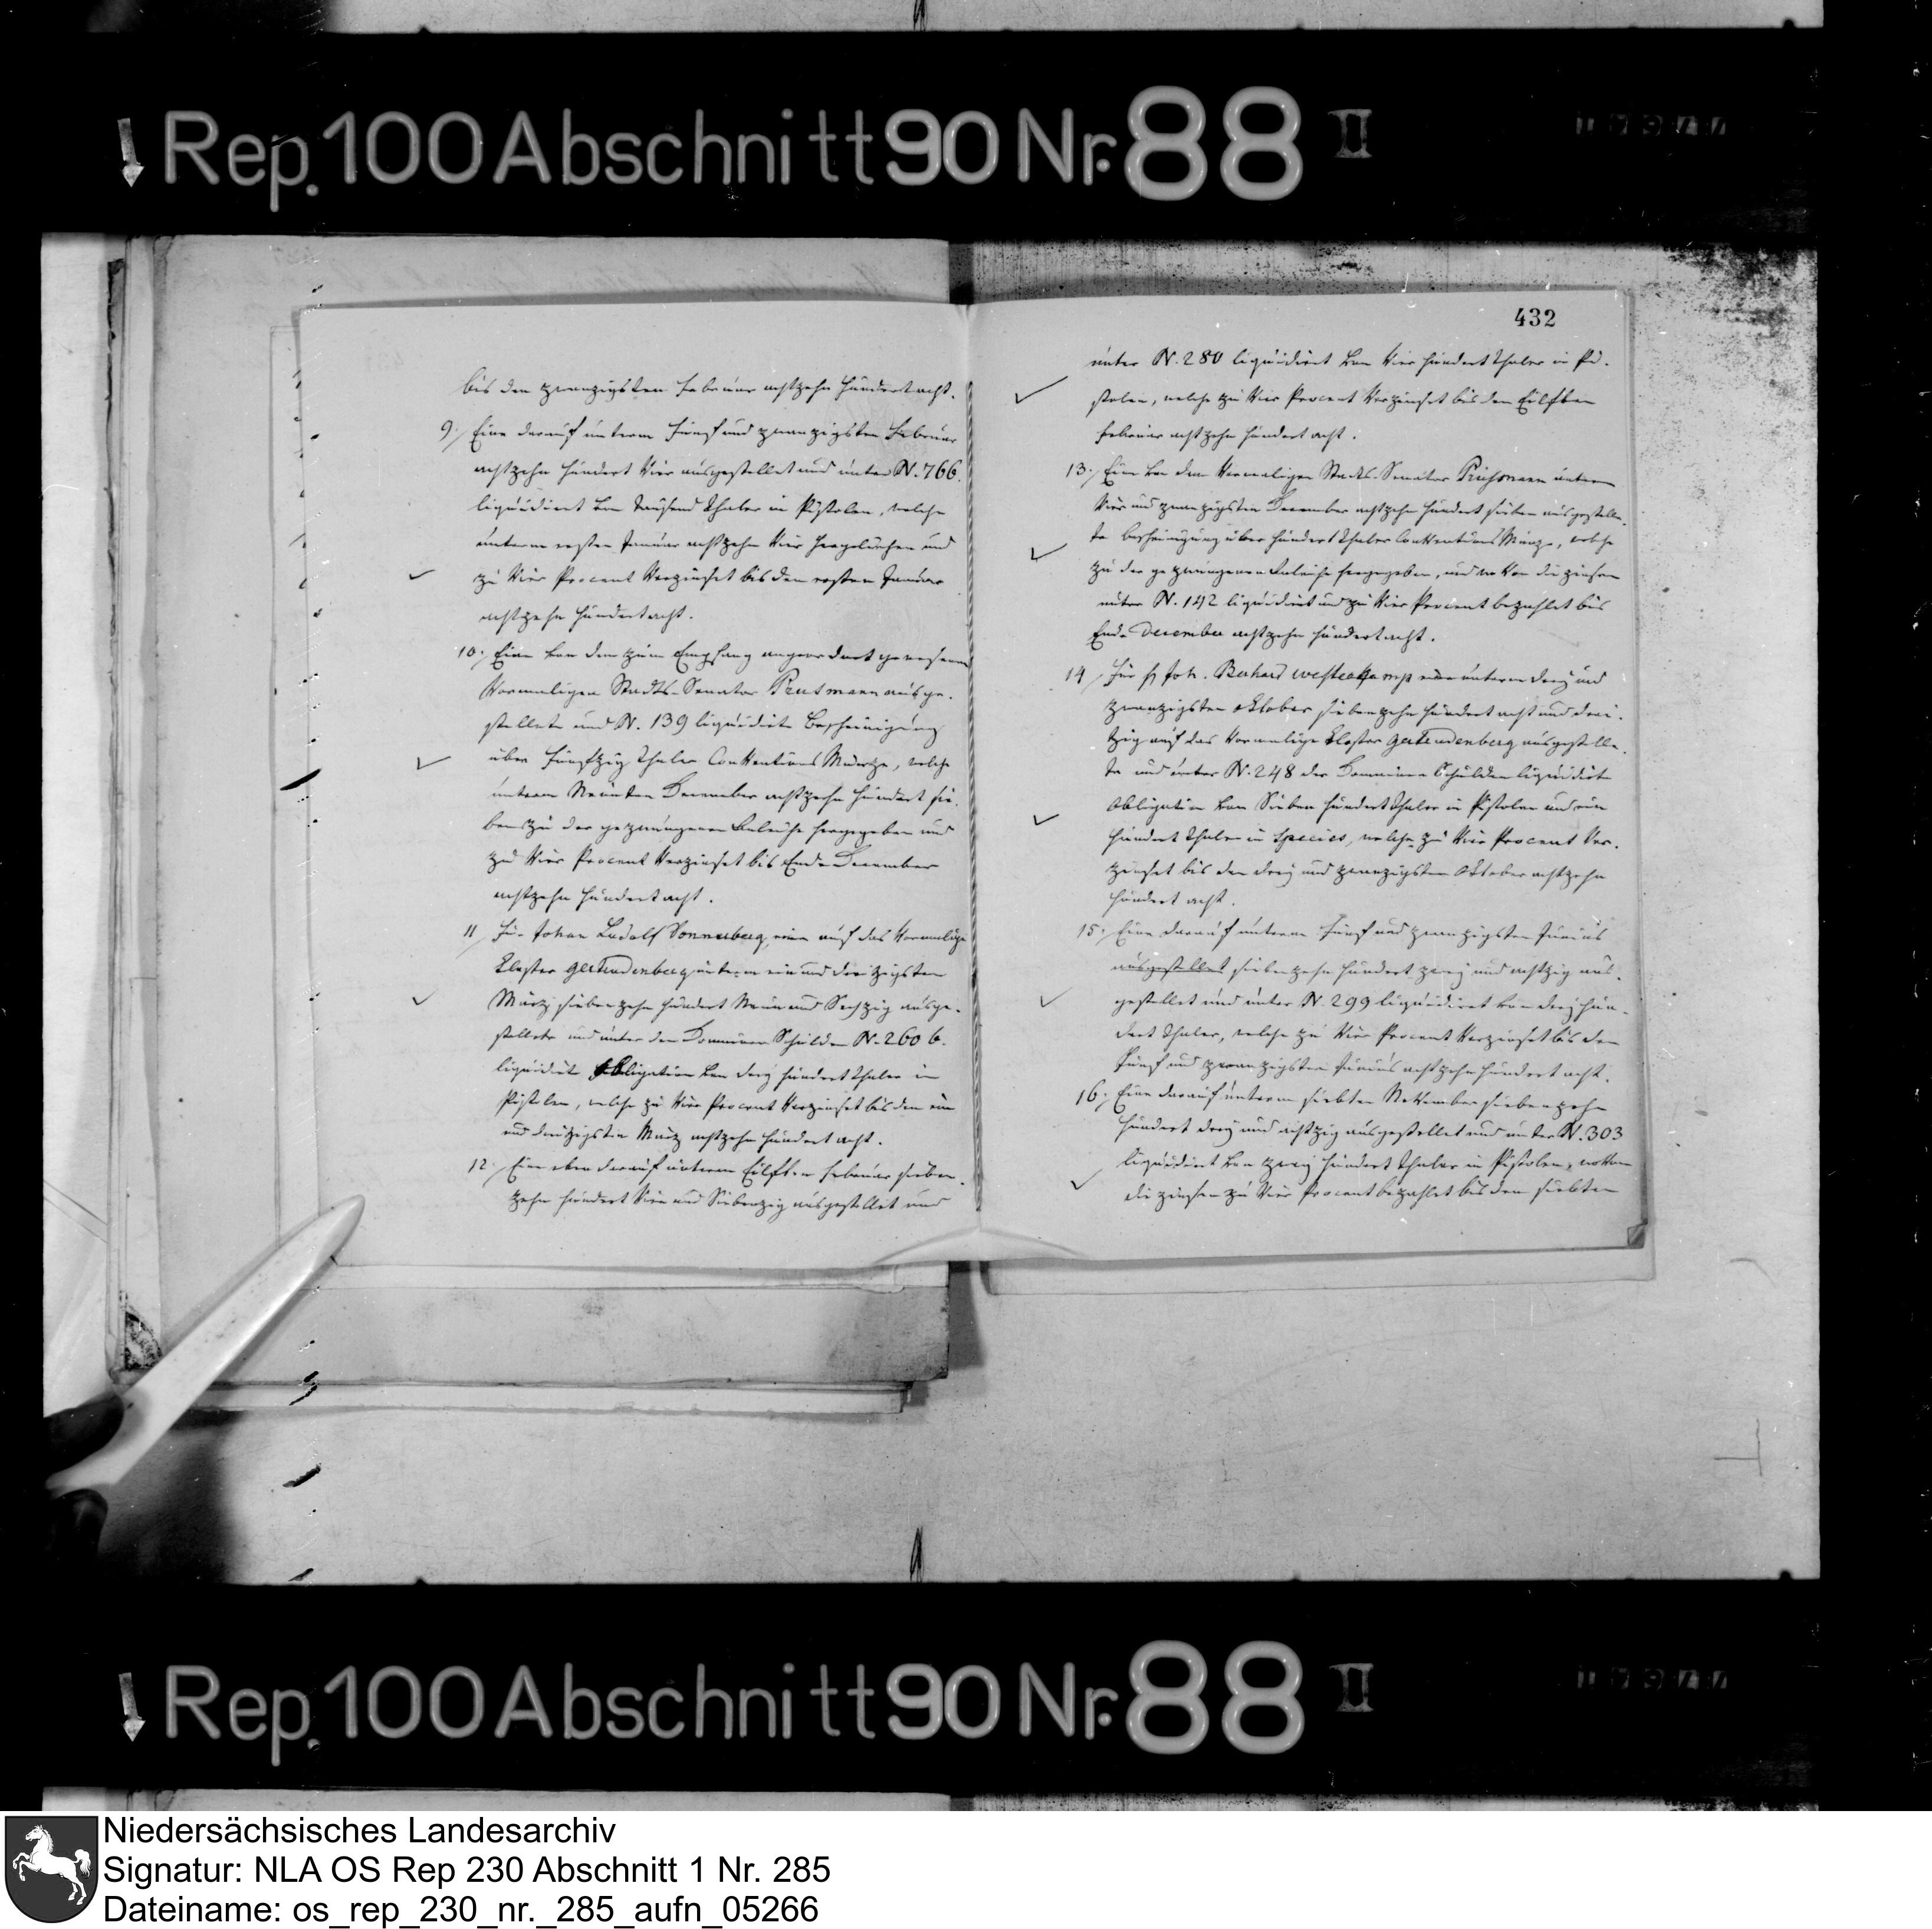 Rep. 100 Abschnitt 90 Nr. 88 II
bis den zwanzigsten Februar achtzehn hundert acht.
9. Eine darauf unterm fünf und zwanzigsten Februar
achtzehn hundert Vier ausgestellet und unter N. 766.
liquidiret von Tausend Thaler in Pistolen, welche
unterm ersten Januar achtzehn Vier hergeliehen und
zu Vier Procent Verzinset bis den ersten Januar
achtzehn hundert acht.
10. Eine von dem zum Empfang angeordnet gewesenen
Vormaligen Stadts-Senator Prutmann ausge-
stellete und N. 139 liquidirte Bescheinigung
über Fünfzig Thaler Conventions Münze, welche
unterm Neunten December achtzehn hundert sie-
ben zu der gezwungenen Anleihe hergegeben und
zu Vier Procent Verzinset bis Ende December
achtzehn hundert acht.
11. Für Johan Ludolf Sonneberg, eine auf das Vormalige
Kloster Gertrudenberg unterm ein und dreitzigsten
März siebenzehn hundert Neun und Sechzig ausge-
stellete und unter den Domainen Schulden N. 260 b.
liquidirte Obligation von drey hundert Thaler in
Pistolen, welche zu Vier Procent Verzinset bis den ein
und dreitzigsten März achtzehn hundert acht.
12. Eine eben darauf unterm Eilften Februar sieben-
zehn hundert Vier und Siebenzig ausgestellet und
432
unter N. 280 liquidiret von Vier hundert Thaler in Pi-
stolen, welche zu Vier Procent Verzinset bis den Eilften
Februar achtzehn hundert acht.
13. Eine von dem Vormaligen Stadts-Senator unterm
Vier und zwanzigsten December achtzehn hundert sieben ausgestelle-
te Bescheinigung über hundert Thaler Conventions Münze, welche
zu der gezwungenen Anleihe hergegeben, und wovon die Zinsen
unter N. 142 liquidiret und zu Vier Procent bezahlet bis
Ende December achtzehn hundert acht.
14. Für H Joh. Berhard Westerkamp eine unterm drey und
zwanzigsten Oktober siebenzehn hundert acht und drei-
tzig auf das Vormalige Kloster Gertrudenberg ausgestelle-
te und unter N. 248 der Domainen Schulden liquidirte
Obligation von Sieben hundert Thaler in Pistolen und ein
hundert Thaler in Species, welche zu Vier Procent Ver-
zinset bis den drey und zwanzigsten Oktober achtzehn
hundert acht.
15. Eine darauf unterm fünf und zwanzigsten Junius
ausgestellet siebenzehn hundert zwey und achtzig aus-
gestellet und unter N. 299 liquidiret von drey hun-
dert Thaler, welche zu Vier Procent Verzinset bis den
fünf und zwanzigsten Junius achtzehn hundert acht.
16. Eine darauf unterm siebten November siebenzehn
hundert drey und achtzig ausgestellet und unter N. 303
liquidiret von zwey hundert Thaler in Pistolen, wovon
die Zinsen zu Vier Procent bezahlet bis den siebten
Rep. 100 Abschnitt 90 Nr. 88 II
Niedersächsisches Landesarchiv
Signatur: NLA OS Rep 230 Abschnitt 1 Nr. 285
Dateiname: os_rep_230_nr._285_aufn_05266